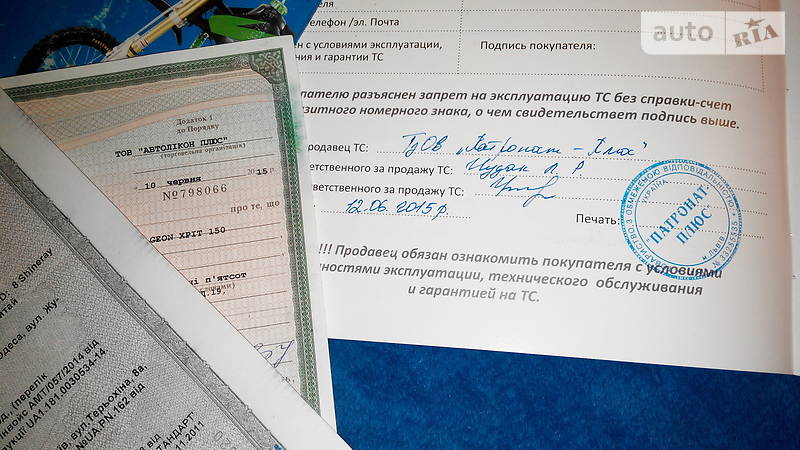 auto RIA
телефон /эл. Почта
ен с условиями эксплуатации,
ния и гарантии ТС
Подпись покупателя:
пателю разъяснен запрет на эксплуатацию ТС без справки-счет
зитного номерного знака, о чем свидетельствет подпись выше.
родавец ТС: ТзОВ „Патронат - Плюс"
етственного за продажу ТС: Чудак Л. Р
етственного за продажу ТС:
12.06.2015р.
Печать:
ТОВАРИСТВО З ОБМЕЖЕНОЮ ВІДПОВІДАЛЬНІСТЮ
УКРАЇНА
"ПАТРОНАТ-
ПЛЮС"
!!! Продавец обязан ознакомить покупателя с условиями
ностями эксплуатации, технического обслуживания
и гарантией на ТС.
Додаток 1
до Порядку
ТОВ "АВТОЛІКОН ПЛЮС"
(торговельна організація)
10 червня 2015р.
№798066
про те, що
GEON XPIT 150
ні п'ятсот
д.19,
словами)
D- 8 Shineray
итай
Одеса, вул. Жу-
од., (перелік
інвойс АМТ/057/2014 від
рукції UA1.181.0030534-14,
иїв, вул.Терьохіна, 8а,
№UA.PN.162 від
ва від
ТАНДАРТ"
.11.2011